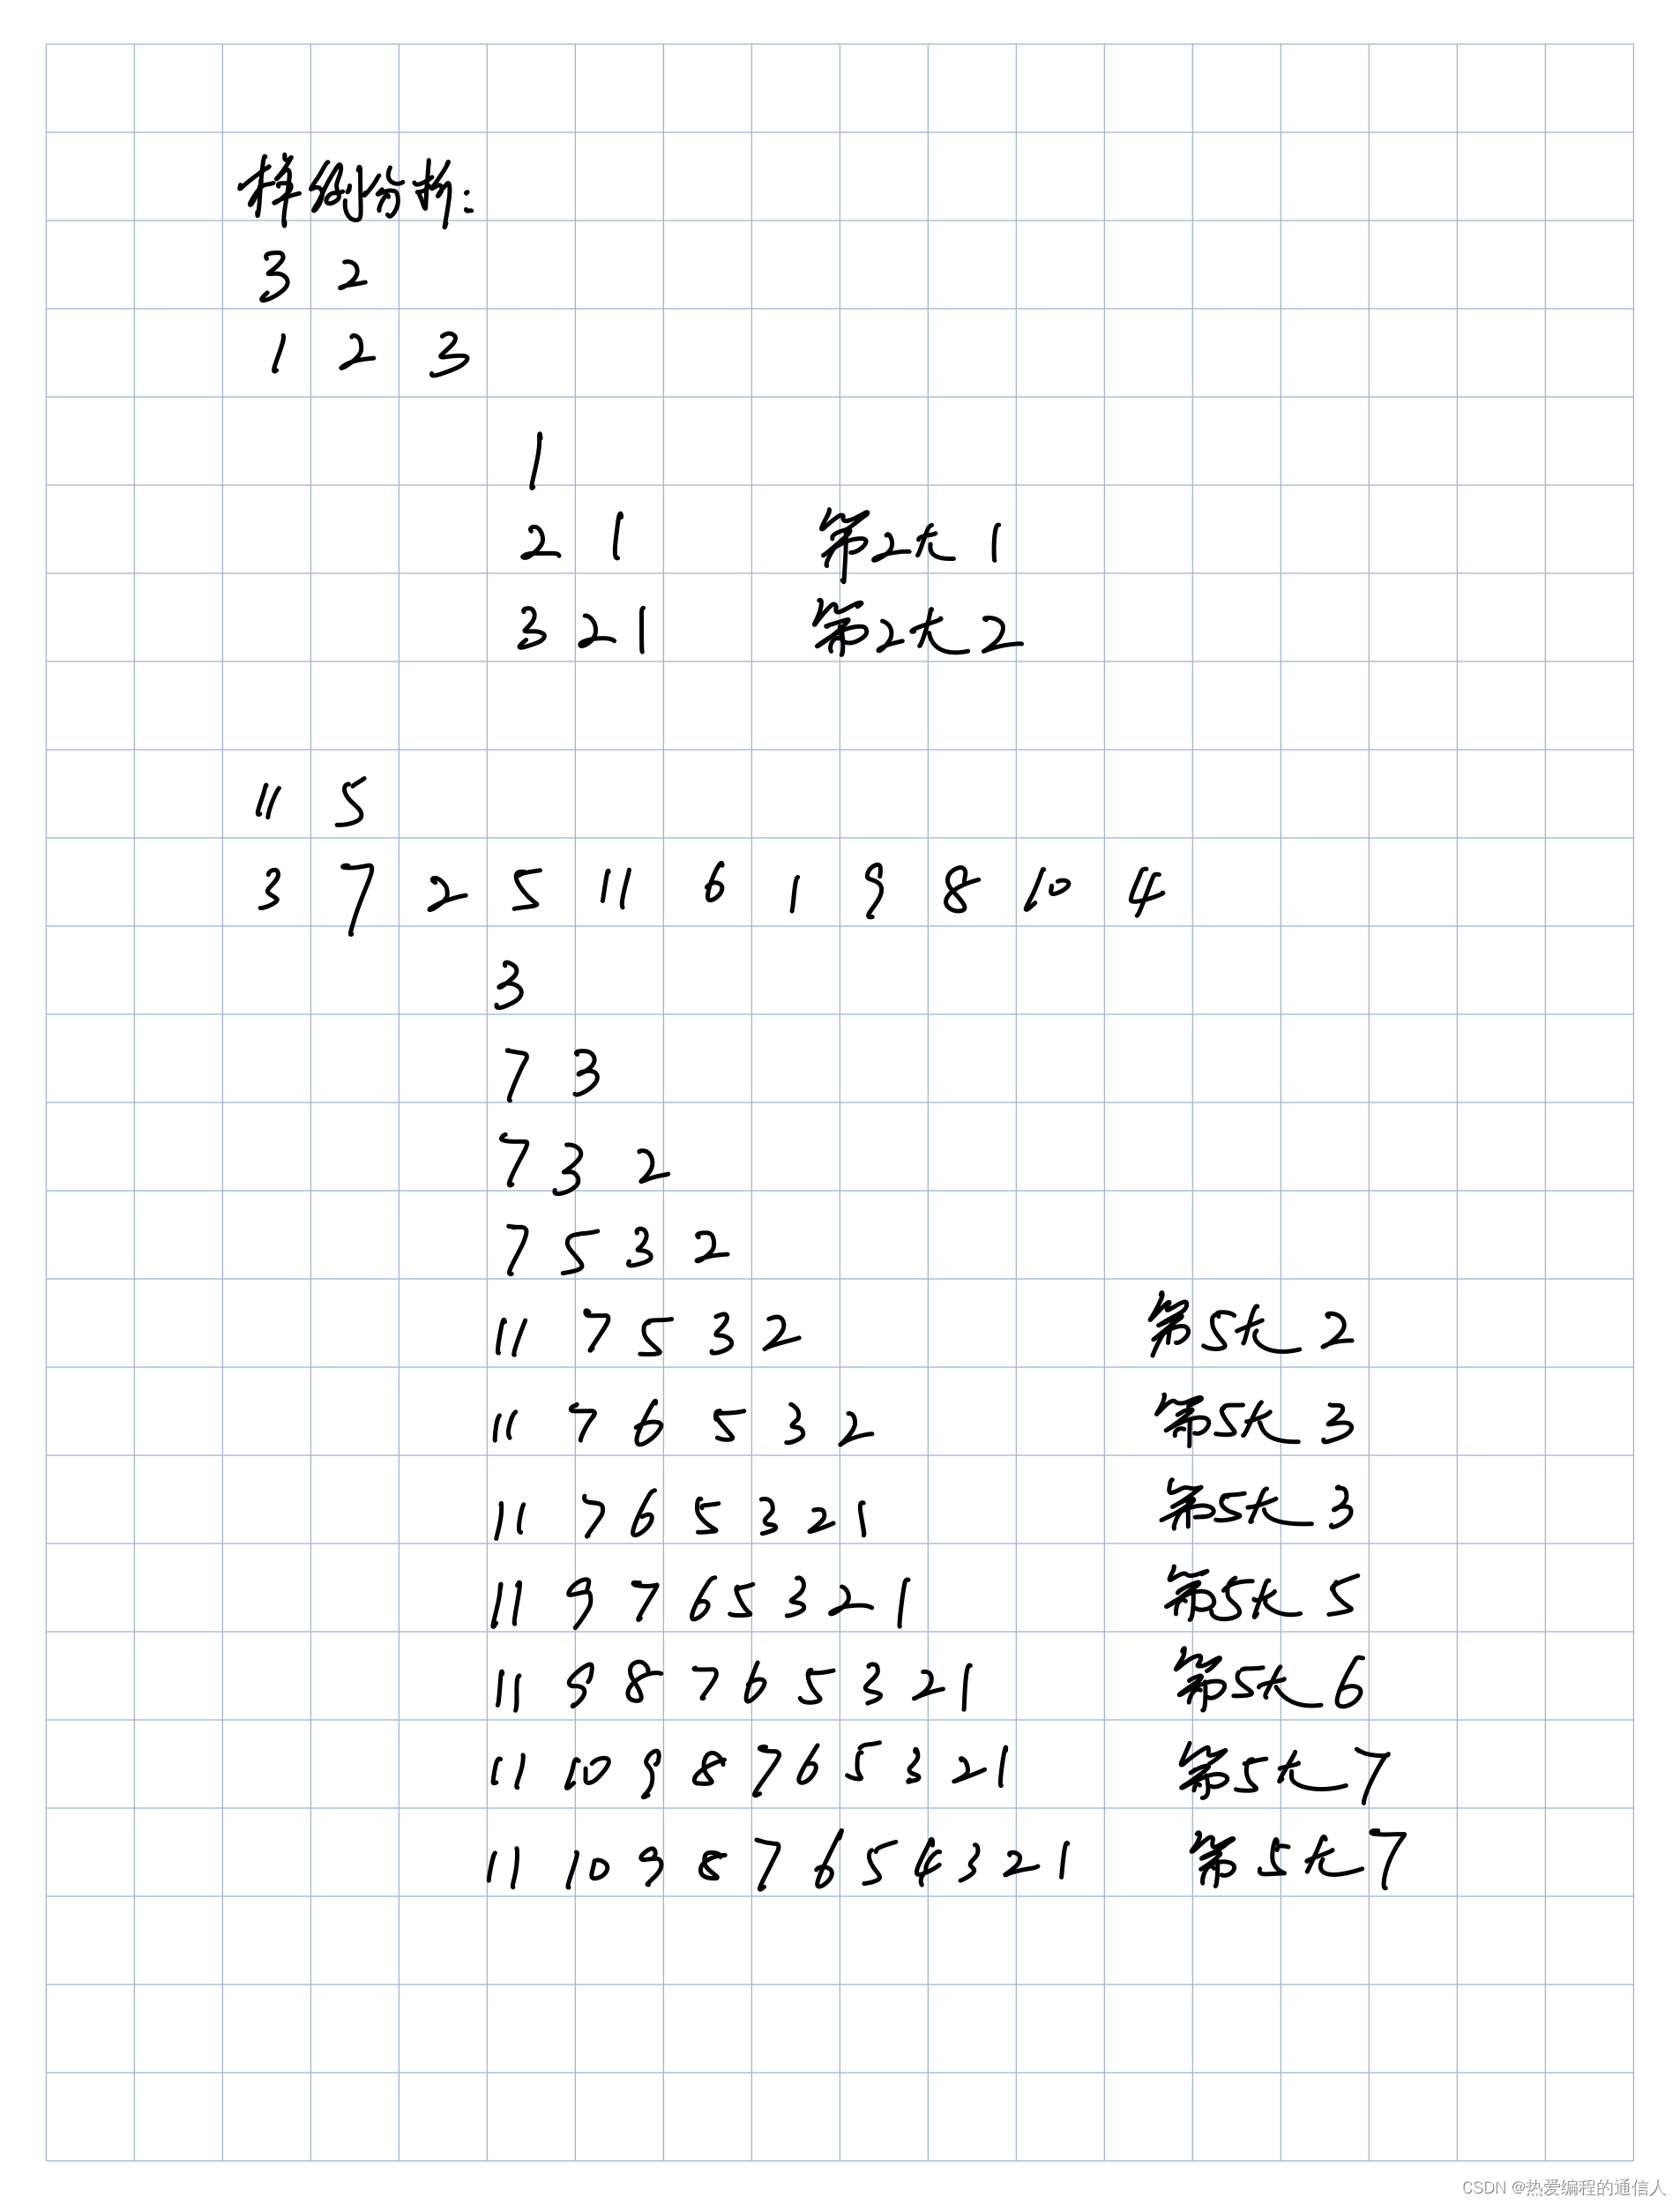 样例分析:
3 2
1 2 3
1
2 1 第2大1
3 2 1 第2大2
11 5
3 7 2 5 11 6 1 9 8 10 4
3
7 3
7 3 2
7 5 3 2
11 7 5 3 2 第5大2
11 7 6 5 3 2 第5大3
11 7 6 5 3 2 1 第5大3
11 9 7 6 5 3 2 1 第5大5
11 9 8 7 6 5 3 2 1 第5大6
11 10 9 8 7 6 5 3 2 1 第5大7
11 10 9 8 7 6 5 4 3 2 1 第5大7
CSDN @热爱编程的通信人